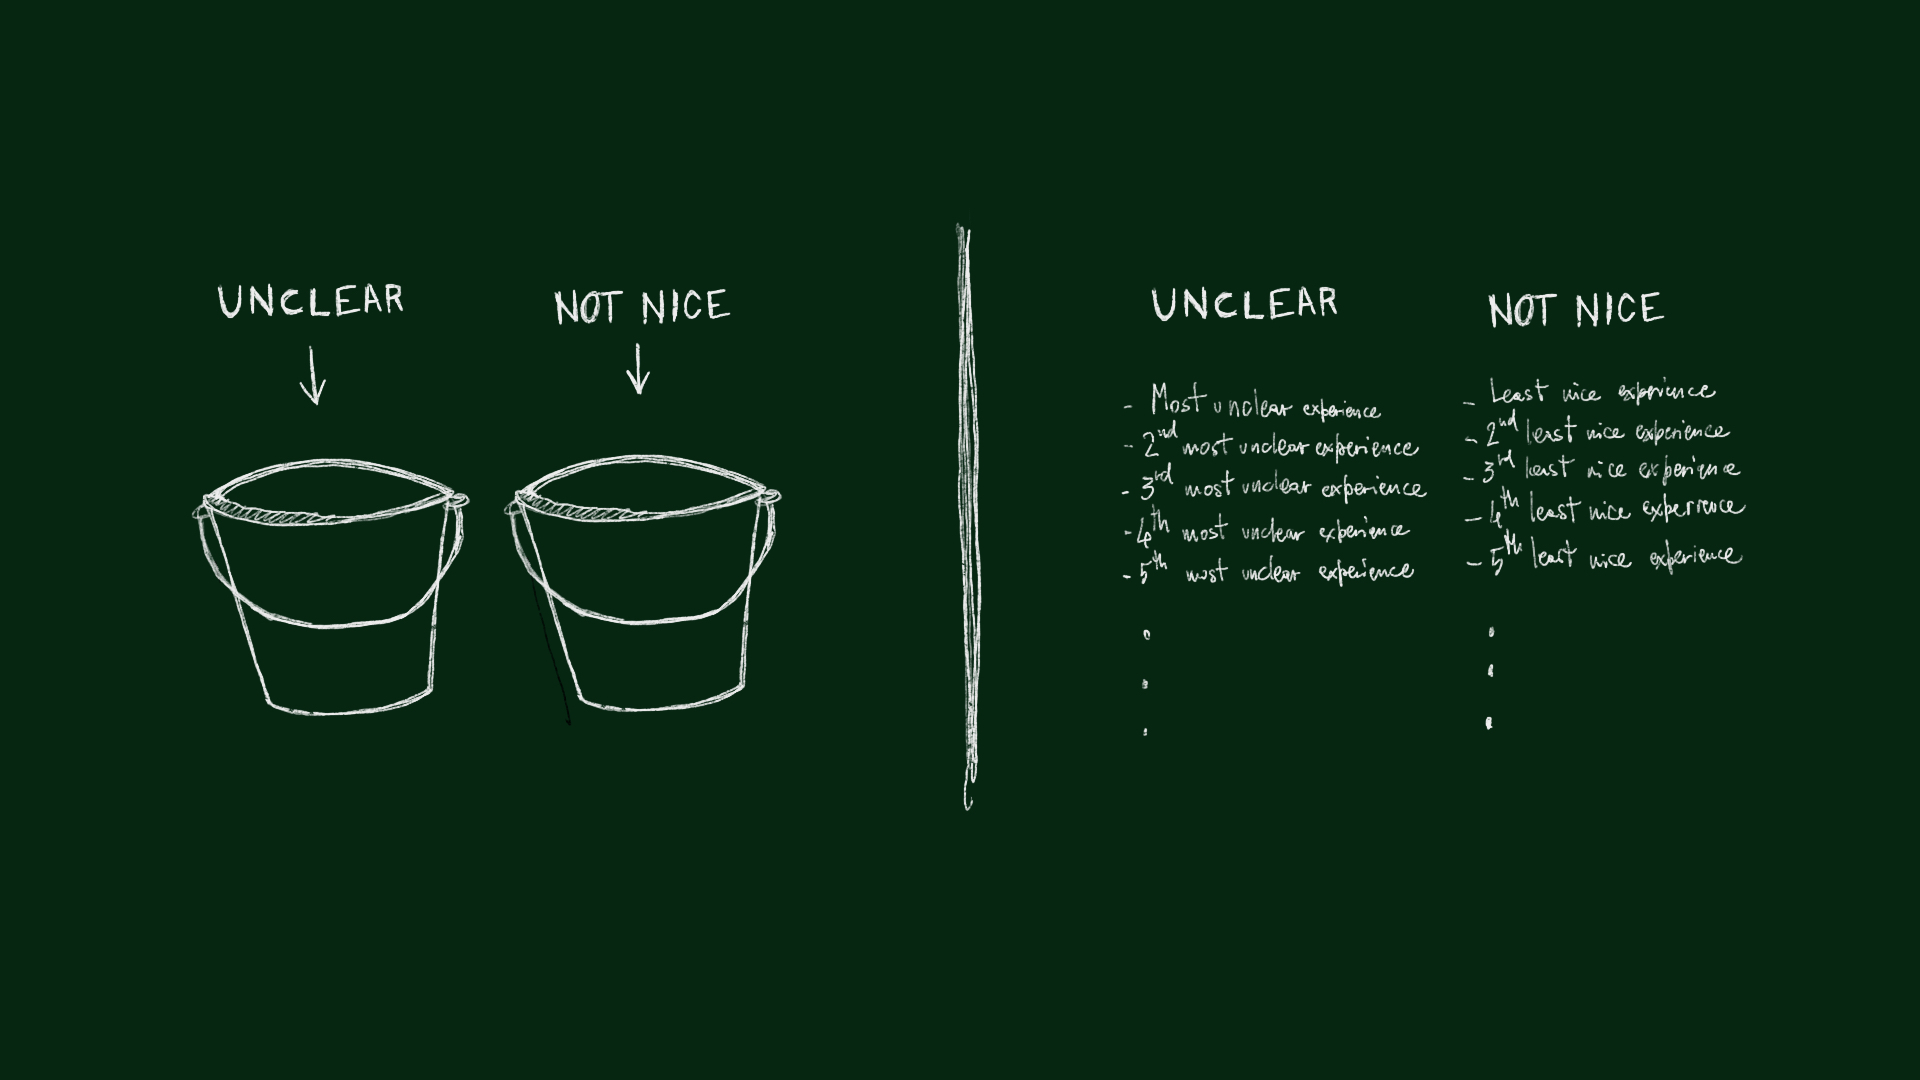 UNCLEAR
NOT NICE
UNCLEAR
- Most unclear experience
- 2nd most unclear experience
- 3rd most unclear experience
- 4th most unclear experience
- 5th most unclear experience
NOT NICE
- Least nice experience
- 2nd least nice experience
- 3rd least nice experience
- 4th least nice experience
- 5th least nice experience